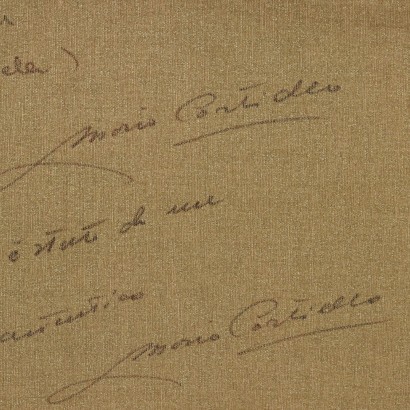 Mario Cortiello
è stato da me
autentico
Mario Cortiello